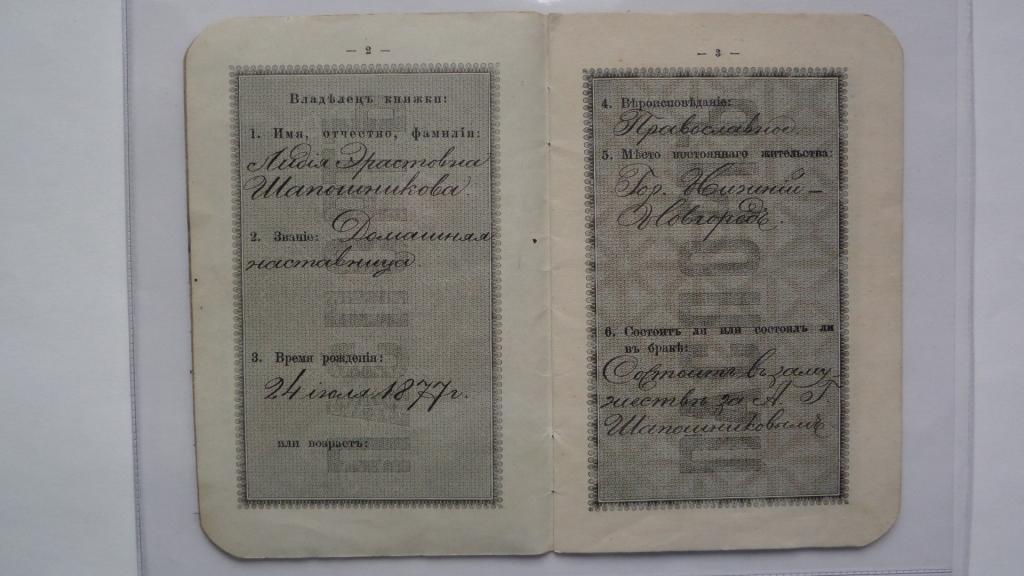 — 2 —
Владѣлецъ книжки:
1. Имя, отчество, фамилія:
Лидія Эрастовна
Шапошникова.
2. Званіе: Домашняя
наставница.
3. Время рожденія:
24 іюля 1877 г.
или возрастъ:
— 3 —
4. Вѣроисповѣданіе:
Православное.
5. Мѣсто постояннаго жительства:
Гор. Нижній-
Новгородъ.
6. Состоитъ ли или состоялъ ли
въ бракѣ:
Состоитъ въ заму
жествѣ за А. Г.
Шапошниковымъ